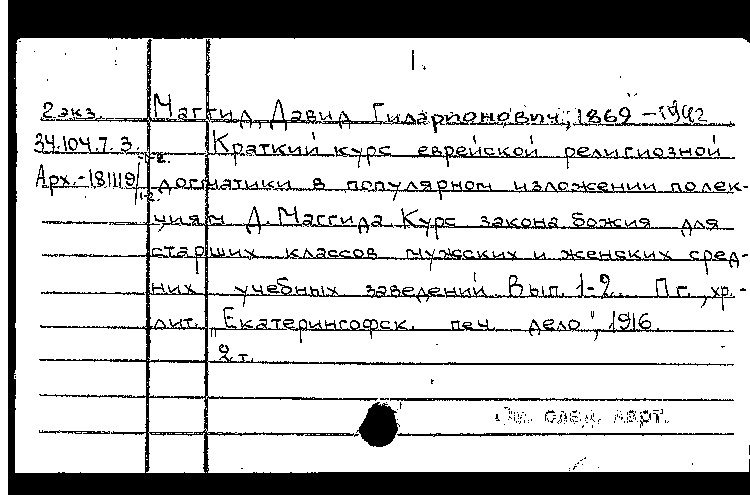 1.
2 экз. Маггид, Давид Гиларионович, 1869 - 1942
34.104.7.3. Краткий курс еврейской религиозной
Арх.-181119/1-2 догматики в популярном изложении по лек-
циям Д. Маггида. Курс закона божия для
старших классов мужских и женских сред-
них учебных заведений. Вып. 1-2. Пг., хр.-
лит. "Екатерингофск. печ. дело", 1916.
2 т.
См. след. карт.